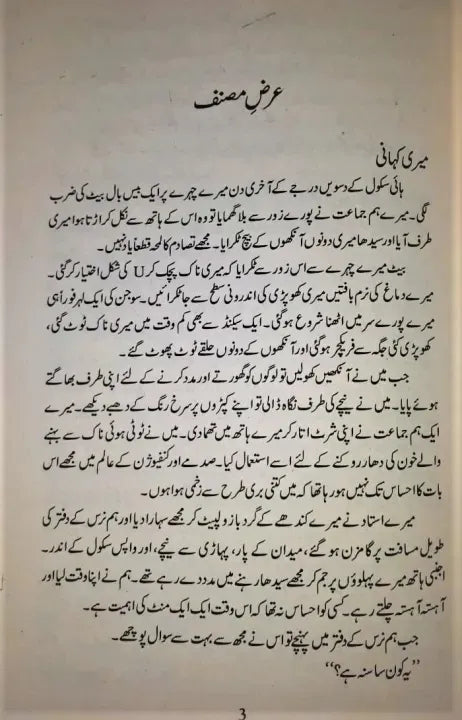 عرضِ مصنف
میری کہانی
ہائی سکول کے دسویں درجے کے آخری دن میرے چہرے پر ایک بیس بال بیٹ کی ضرب
لگی۔ میرے ہم جماعت نے پورے زور سے بلا گھمایا تو وہ اس کے ہاتھ سے نکل کر اڑتا ہوا میری
طرف آیا اور سیدھا میری دونوں آنکھوں کے بیچ ٹکرایا۔ مجھے تصادم کا لمحہ قطعاً یاد نہیں۔
بیٹ میرے چہرے سے اس زور سے ٹکرایا کہ میری ناک پچک کر U کی شکل اختیار کر گئی۔
میرے دماغ کی نرم بافتیں میری کھوپڑی کی اندرونی سطح سے جا ٹکرائیں۔ سوجن کی ایک لہر فوراً ہی
میرے پورے سر میں اٹھنا شروع ہو گئی۔ ایک سیکنڈ سے بھی کم وقت میں میری ناک ٹوٹ گئی،
کھوپڑی کئی جگہ سے فریکچر ہو گئی اور آنکھوں کے دونوں حلقے ٹوٹ پھوٹ گئے۔
جب میں نے آنکھیں کھولیں تو لوگوں کو گھورتے اور مدد کرنے کے لئے اپنی طرف بھاگتے
ہوئے پایا۔ میں نے نیچے کی طرف نگاہ ڈالی تو اپنے کپڑوں پر سرخ رنگ کے دھبے دیکھے۔ میرے
ایک ہم جماعت نے اپنی شرٹ اتار کر میرے ہاتھ میں تھما دی۔ میں نے ٹوٹی ہوئی ناک سے بہنے
والے خون کی دھار روکنے کے لئے اسے استعمال کیا۔ صدمے اور کنفیوژن کے عالم میں مجھے اس
بات کا احساس تک نہیں ہو رہا تھا کہ میں کتنی بری طرح سے زخمی ہوا ہوں۔
میرے استاد نے میرے کندھے کے گرد بازو لپیٹ کر مجھے سہارا دیا اور ہم نرس کے دفتر کی
طویل مسافت پر گامزن ہو گئے، میدان کے پار، پہاڑی سے نیچے، اور واپس سکول کے اندر۔
اجنبی ہاتھ میرے پہلوؤں پر جم کر مجھے سیدھا رہنے میں مدد دے رہے تھے۔ ہم نے اپنا وقت لیا اور
آہستہ آہستہ چلتے رہے۔ کسی کو احساس نہ تھا کہ اس وقت ایک ایک منٹ کی اہمیت ہے۔
جب ہم نرس کے دفتر میں پہنچے تو اس نے مجھ سے بہت سے سوال پوچھے۔
”یہ کون سا سنہ ہے؟“
3